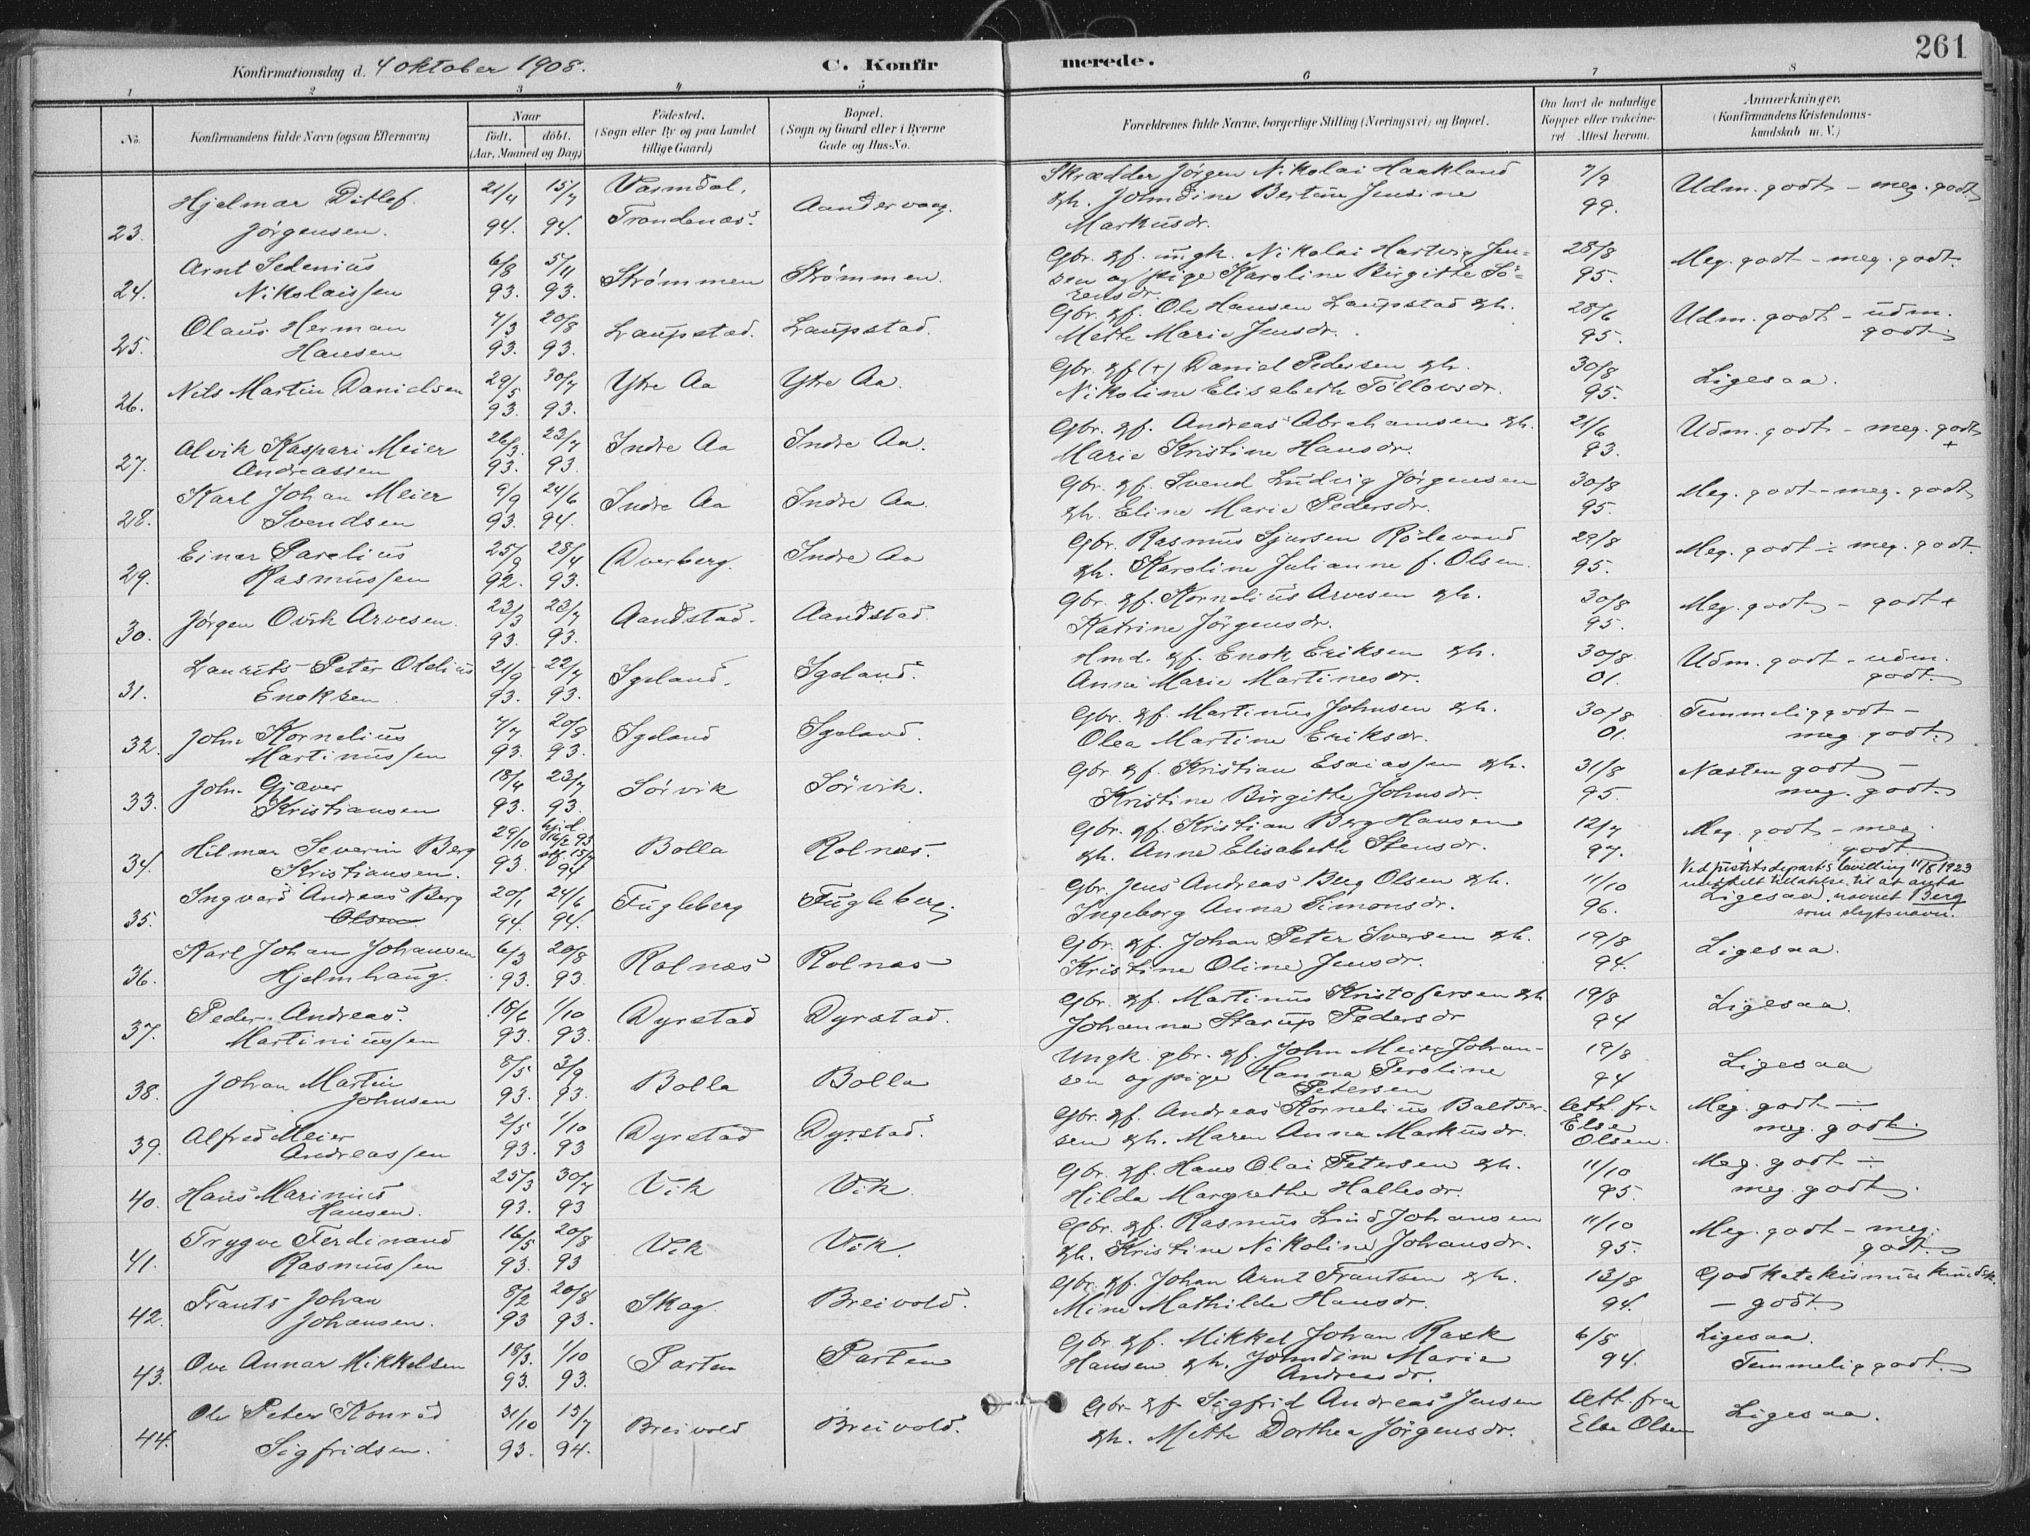 261
Konfirmationsdag d. 4 oktober 1908. C. Konfirmerede.
1 2 3 4 5 6 7 8
No. Konfirmandens fulde Navn (ogsaa Efternavn) Naar født. døbt. (Aar, Maaned og Dag) Födested. (Sogn eller By og paa Landet tillige Gaard) Bopæl. (Sogn og Gaard eller i Byerne Gade og Hus-No. Forældrenes fulde Navne, borgerlige Stilling (Næringsvei) og Bopæl. Om havt de naturlige Kopper eller vakcineret Attest herom. Anmærkninger. (Konfirmandens Kristendomskundskab m. V.)
23. Hjelmar Ditlef Jørgensen. 21/4 94. 15/7 94. Vasmdal, Trondenæs. Aandervaag. Skrædder Jørgen Nikolai Haakland & h. Johndine Bertine Jensine Markusdr. 7/9 99. Udm. godt - meg. godt
24. Arnt Sedenius Nikolaissen 6/8 93. 5/11 93. Strømmen Strømmen. Gbr. gf. ungk. Nikolai Hartvig Jensen og pige Karoline Birgitte Sörensdr. 28/8 95. Meg. godt - meg. godt.
25. Olaus Herman Hansen 4/3 93. 20/8 93. Laupstad. Laupstad. Gbr. gf. Ole Hansen Laupstad & h. Mette Marie Jensdr. 28/6 95. Udm. godt - udm. godt.
26. Nils Martin Danielsen 29/5 93. 30/7 93. Ytre Aa Ytre Aa. Gbr. gf (+) Daniel Pedersen & h. Nikoline Elisabeth Tollovsdr. 30/8 95. Ligesaa.
27. Alvik Kaspari Meier Andreassen 26/3 93. 23/7 93. Indre Aa Indre Aa. Gbr. gf. Andreas Abrahamsen & h. Marie Kristine Hansdr. 21/6 93. Udm. godt - meg. godt +
28. Karl Johan Meier Svendsen 9/9 93. 24/6 94. Indre Aa Indre Aa. Gbr. gf. Svend Ludvig Jørgensen & h. Eline Marie Pedersdr. 30/8 95. Meg. godt - meg. godt
29. Einar Parelius Rasmussen 25/9 92. 28/4 93. Dverberg. Indre Aa Gbr. Rasmus Sjursen Rölevand & h. Karoline Julianne f. Olsen. 29/8 95. Meg. godt ÷ meg. godt.
30. Jørgen Ovik Arvesen. 23/3 93. 23/7 93. Aandstad. Aandstad. Gbr. gf. Kornelius Arvesen & h. Katrine Jörgensdr. 30/8 95. Meg. godt - godt +
31. Laurits Peter Otelius Enoksen 21/9 93. 22/7 93. Igeland. Igeland. Hmd. gf. Enok Eriksen & h. Anne Marie Martinesdr. 30/8 01. Udm. godt - udm. godt.
32. John Kornelius Martinussen 4/7 93. 20/8 93. Igeland Igeland. Gbr. gf. Martinus Johnsen & h. Olea Martine Eriksdr. 30/8 01. Temmelig godt - meg. godt.
33. John Gjæver Kristiansen 18/4 93. 23/7 93. Sørvik Sørvik. Gbr. gf. Kristian Esaiassen & h. Kristine Birgitte Johnsdr. 31/8 95. Næsten godt - meg. godt.
34. Hilmar Severin Berg Kristiansen. 29/10 93 hjd. 16/12 93 stf. 15/7 94 Bolla Rolnæs. Gbr. gf. Kristian Berg Hansen & h. Anne Elisabeth Stensdr. 12/7 97. Meg. godt - meg. godt
35. Ingvard Andreas Berg Olsen 20/1 94. 24/6 94. Fugleberg Fugleberg. Gbr. Jens Andreas Berg Olsen & h. Ingeborg Anna Simonsdr. 11/10 96. Ligesaa. Ved justitsdeparts bevilling 11/8 1923 meddelt tilladelse til at anta navnet Berg som slegtsnavn.
36. Karl Johan Johansen Hjelmhaug. 6/3 93. 20/8 93 Rolnæs Rolnæs Gbr. gf. Johan Peter Iversen & h. Kristine Oline Jensdr. 19/8 94. Ligesaa.
37. Peder Andreas Martiniussen 18/6 93. 1/10 93. Dyrstad Dyrstad. Gbr. gf. Martinus Kristofersen & h Johanna Starup Pedersdr 19/8 94 Ligesaa.
38. Johan Martin Johnsen 8/5 93. 3/9 93. Bolla Bolla Ungk. gbr. gf. John Meier Johansen og pige Hanna Peroline Petersen 19/8 94 Ligesaa
39. Alfred Meier Andreassen 2/5 93. 1/10 93 Dyrstad Dyrstad. Gbr. gf. Andreas Kornelius Baltsersen & h. Maren Anna Markusdr. Att. fra Else Olsen. Meg. godt ÷ meg. godt.
40. Hans Marinius Hansen. 25/3 93. 30/7 93 Vik Vik. Gbr. gf. Hans Olai Petersen & h. Hilda Margrethe Hallesdr. 11/10 95. Meg. godt ÷ meg. godt.
41. Trygve Ferdinand Rasmussen 16/5 93. 20/8 93 Vik Vik. Gbr. gf. Rasmus Lind Johansen & h. Kristine Nikoline Johansdr. 11/10 95. Meg. godt - meg. godt.
42. Frants Johan Johansen. 8/2 93 20/8 93. Skog. Breivold. Gbr. gf. Johan Arnt Frantsen & h. Mine Mathilde Hansdr. 13/8 94. God katekismuskundsk. - godt
43. Ove Annar Mikkelsen 18/3 93. 1/10 93. Parten Parten Gbr. gf. Mikkel Johan Rask Hansen & h. Johndine Marie Andreasdr. 6/8 94. Ligesaa. Temmelig godt.
44. Ole Peter Konrad Sigfridsen. 31/10 93. 15/7 94. Breivold Breivold. Gbr. gf. Sigfrid Andreas Jensen & h. Mette Dorthea Jörgensdr. Att. fra Else Olsen Ligesaa.